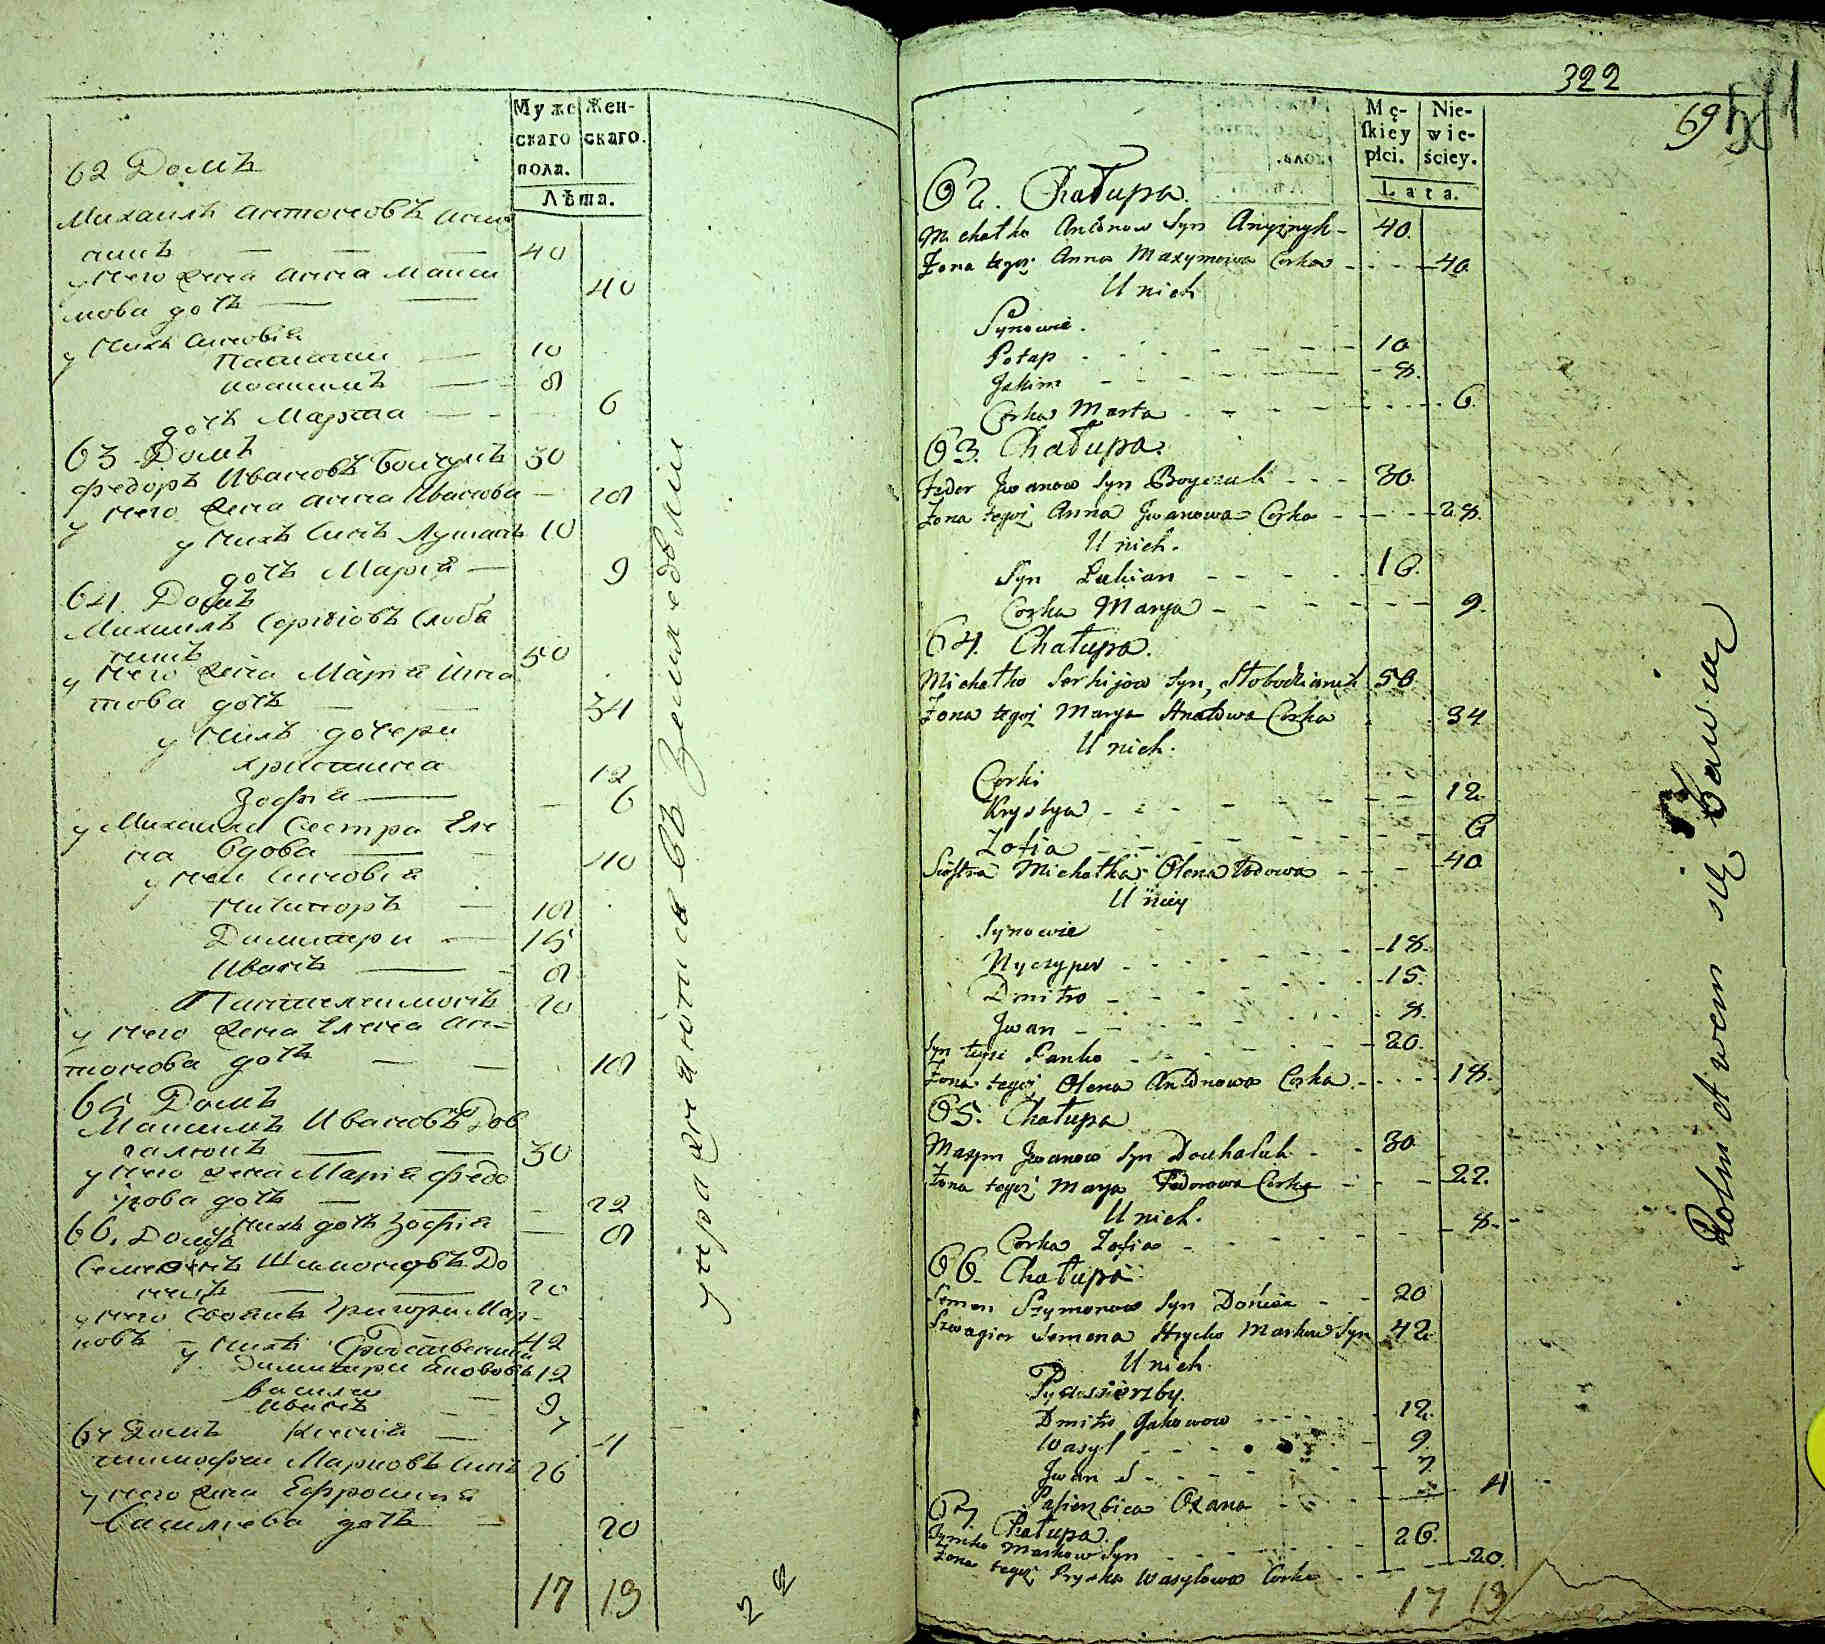 Муже
скаго
пола.
Жен-
скаго.
Лѣта.
62 Домъ
Михаилъ Антоновъ
40
у него жена Анна Макси
мова дочь 40
у нихъ сыновья
10
8
дочь Марта 6
63 Домъ
Федоръ Ивановъ Бойчукъ 30
у него жена Анна Иванова 28
у нихъ сынъ Лукианъ 10
дочь Марія 9
64 Домъ
Михаилъ Сергіовъ Слобо
50
у него жена Марія Игна
това дочь 34
у нихъ дочери
Христина 12
Зофія 6
у Михаила сестра Еле
на вдова 40
у ней сыновья
Никифоръ 18
Димитри 15
Иванъ 8
Пантелеимонъ 20
у него жена Елена Ан-
тонова дочь 18
65 Домъ
Максимъ Ивановъ Дов
галюкъ 30
у него жена Марія Федо
рова дочь 22
у нихъ дочь Зофія 8
66. Домъ
Семенъ Шимоновъ До
20
у него своякъ Григори Мар-
ковъ 42
у нихъ
Димитри Якововъ 12
Василь 9
Иванъ 7
Ксенія 4
67 Домъ
Тимофей Марковъ сынъ 26
у него жена Ефросинія
Василіева дочь 20
17 19
упражняются въ земледѣліи
22
322
69
Mę-
skiey
płci.
Nie-
wie-
ściey.
Lata.
62. Chałupa.
Michałko Antonow Syn 40.
Żona tegoż Anna Maxymowa Corka 40
U nich
Synowie.
Potap 10
Jakim 8.
Corka Marta 6.
63. Chałupa.
Fedor Jwanow Syn Boyczuk 30.
Żona tegoż Anna Jwanowa Corka 28.
U nich.
Syn Lukian 10.
Corka Marya 9.
64. Chałupa.
Michałko Serhijow Syn, Słobodzianik 50
Żona tegoż Marya Hnatowa Corka 34
U nich.
Corki
Krystya 12.
Zofia 6
Siostra Michałka Olena Wdowa 40
U niey
Synowie
Nyczypor 18.
Dmitro 15.
Jwan 8.
Syn teyże Panko 20.
Żona tegoż Olena Antonowa Corka 18.
65. Chałupa
Maxym Jwanow Syn Douhaluk 30
Żona tegoż Marya Fedorowa Corka 22.
U nich.
Corka Zofia 8.
66. Chałupa
Semen Szymonow Syn 20
Szwagier Semena Hrycko Markow Syn 42
U nich
Pasierzby.
Dmitro Jakowow 12.
Wasyl 9.
Jwan 7.
Pasierbica Oxana 4
67. Chałupa.
Tymko Markow Syn 26.
Żona tegoż Pryska Wasylowa Corka 20.
17 19
Rolnictwem się Bawią